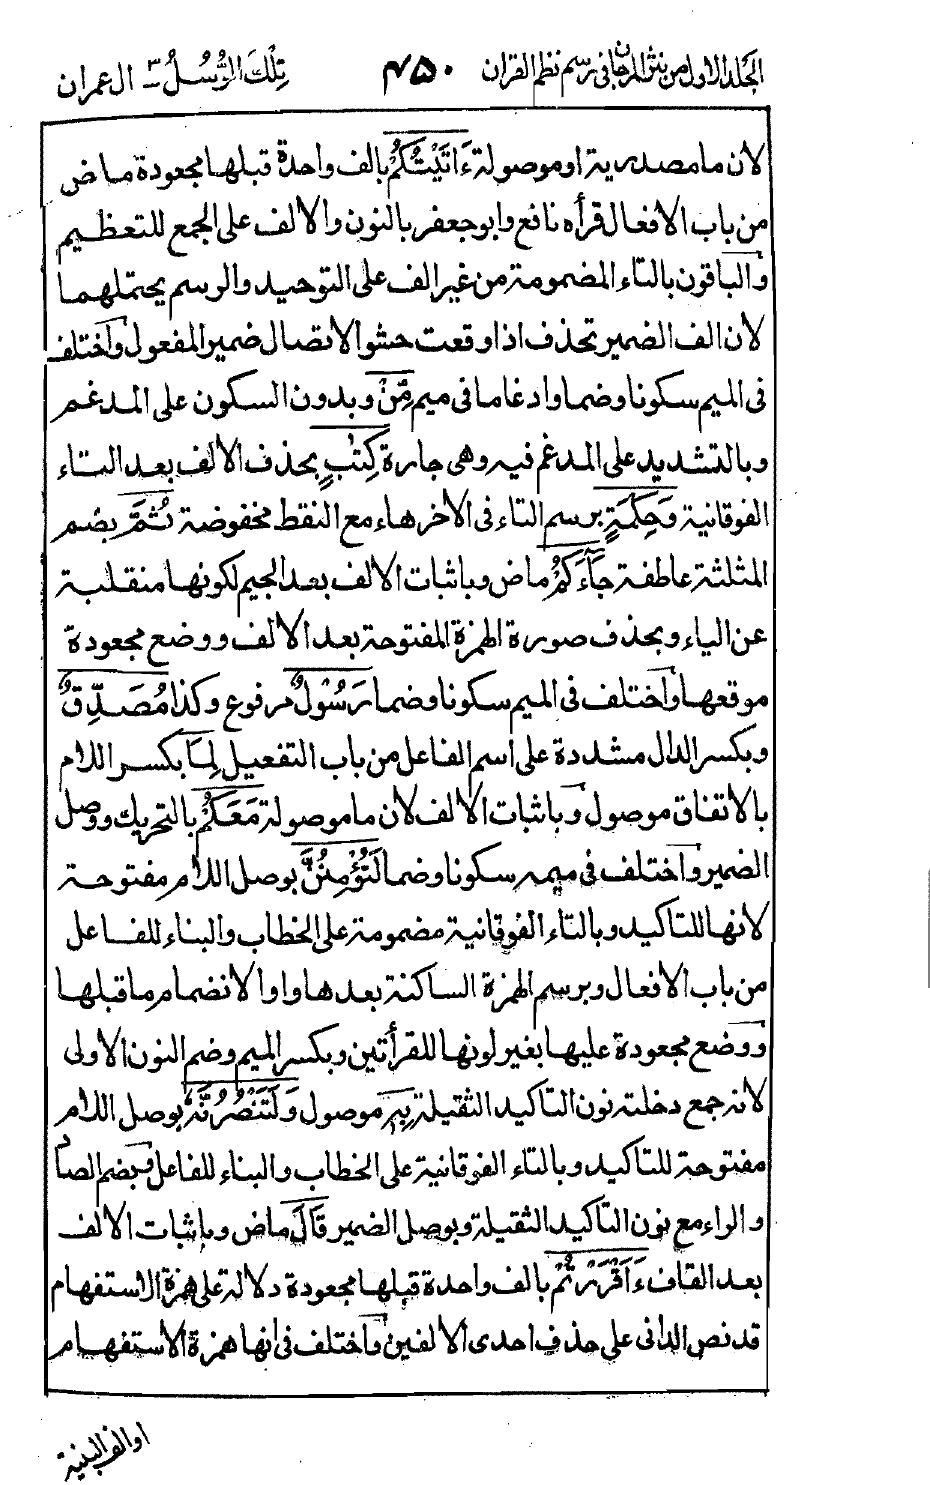 الجلد الاول من نثر المرجان في رسم نظم القران ٤٥٠ تِلْكَ الرُّسُلُ ٣ ال عمران
لان ما مصدرية او موصولة ءَاتَيْتُكُمْ بالف واحدة قبلها مجعودة ماض
من باب الافعال قرأه نافع وابو جعفر بالنون والالف على الجمع للتعظيم
والباقون بالتاء المضمومة من غير الف على التوحيد والرسم يحتملهما
لان الف الضمير تحذف اذا وقعت حشوا لاتصال ضمير المفعول واختلف
فى الميم سكونا وضما وادغاما فى ميم مِّنْ وبدون السكون على المدغم
وبالتشديد على المدغم فيه وهى جارة كِتٰبٍ بحذف الالف بعد التاء
الفوقانية وَحِكْمَةٍ برسم التاء فى الاخر هاء مع النقط مخفوضة ثُمَّ بضم
المثلثة عاطفة جَآءَكُمْ ماض وباثبات الالف بعد الجيم لكونها منقلبة
عن الياء وبحذف صورة الهمزة المفتوحة بعد الالف ووضع مجعودة
موقعها واختلف فى الميم سكونا وضما رَسُوْلٌ مرفوع وكذا مُصَدِّقٌ
وبكسر الدال مشددة على اسم الفاعل من باب التفعيل لِمَا بكسر اللام
بالاتفاق موصول وباثبات الالف لان ما موصولة مَعَكُمْ بالتحريك ووصل
الضمير واختلف فى ميمه سكونا وضما لَتُؤْمِنُنَّ بوصل اللام مفتوحة
لانها للتاكيد وبالتاء الفوقانية مضمومة على الخطاب والبناء للفاعل
من باب الافعال وبرسم الهمزة الساكنة بعدها واوا لانضمام ما قبلها
ووضع مجعودة عليها بغير لونها للقرأتين وبكسر الميم وضم النون الاولى
لانه جمع دخلته نون التاكيد الثقيلة بِهٖ موصول وَلَتَنْصُرُنَّهٗ بوصل اللام
مفتوحة للتاكيد وبالتاء الفوقانية على الخطاب والبناء للفاعل وبضم الصاد
والراء مع نون التاكيد الثقيلة وبوصل الضمير قَالَ ماض وباثبات الالف
بعد القاف ءَاَقْرَرْتُمْ بالف واحدة قبلها مجعودة دلالة على همزة الاستفهام
قد نص الدانى على حذف احدى الالفين واختلف فى انها همزة الاستفهام
او الف البنية